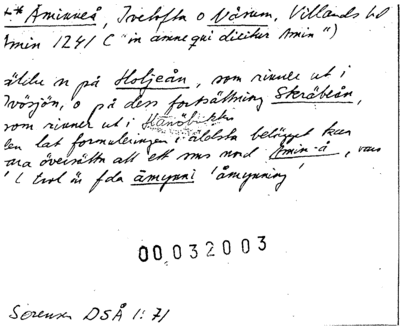 ** Åminneå, Ivetofta o Nårum, Villands hd
Amin 1241 C "in amne qui dicitur Amin")
äldre n på Holjeån, som rinner ut i
Ivösjön, o på dess fortsättning Skräbeån,
som rinner ut i Hanöbukten
den lat formuleringen i äldsta belägget kan
vara översätta att ett sms med Åmin-å, vars
f l trol är fda åmynni 'åmynning'
00.032003
Sørensen DSÅ 1:71